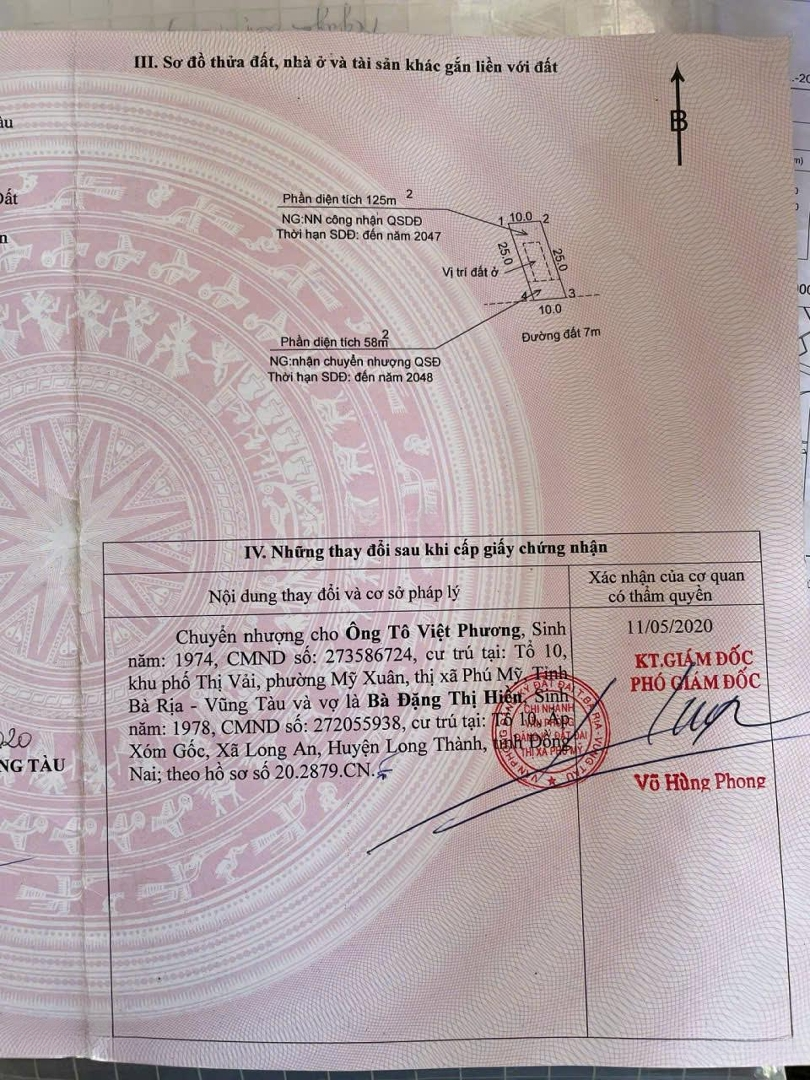 III. Sơ đồ thửa đất, nhà ở và tài sản khác gắn liền với đất
B
Phần diện tích 125m2
NG:NN công nhận QSDĐ
Thời hạn SDĐ: đến năm 2047
1 10.0 2
25.0
25.0
Vị trí đất ở
4
3
10.0
Đường đất 7m
Phần diện tích 58m2
NG:nhận chuyển nhượng QSĐ
Thời hạn SDĐ: đến năm 2048
IV. Những thay đổi sau khi cấp giấy chứng nhận
Nội dung thay đổi và cơ sở pháp lý
Xác nhận của cơ quan
có thẩm quyền
Chuyển nhượng cho Ông Tô Việt Phương, Sinh
năm: 1974, CMND số: 273586724, cư trú tại: Tổ 10,
khu phố Thị Vải, phường Mỹ Xuân, thị xã Phú Mỹ, Tỉnh
Bà Rịa - Vũng Tàu và vợ là Bà Đặng Thị Hiền, Sinh
năm: 1978, CMND số: 272055938, cư trú tại: Tổ 10, Ấp
Xóm Gốc, Xã Long An, Huyện Long Thành, tỉnh Đồng
Nai; theo hồ sơ số 20.2879.CN.
11/05/2020
KT.GIÁM ĐỐC
PHÓ GIÁM ĐỐC
CHI NHANH
VĂN PHÒNG
ĐĂNG KÝ ĐẤT ĐAI
THỊ XÃ PHÚ MỸ
Võ Hùng Phong
NG TÀU